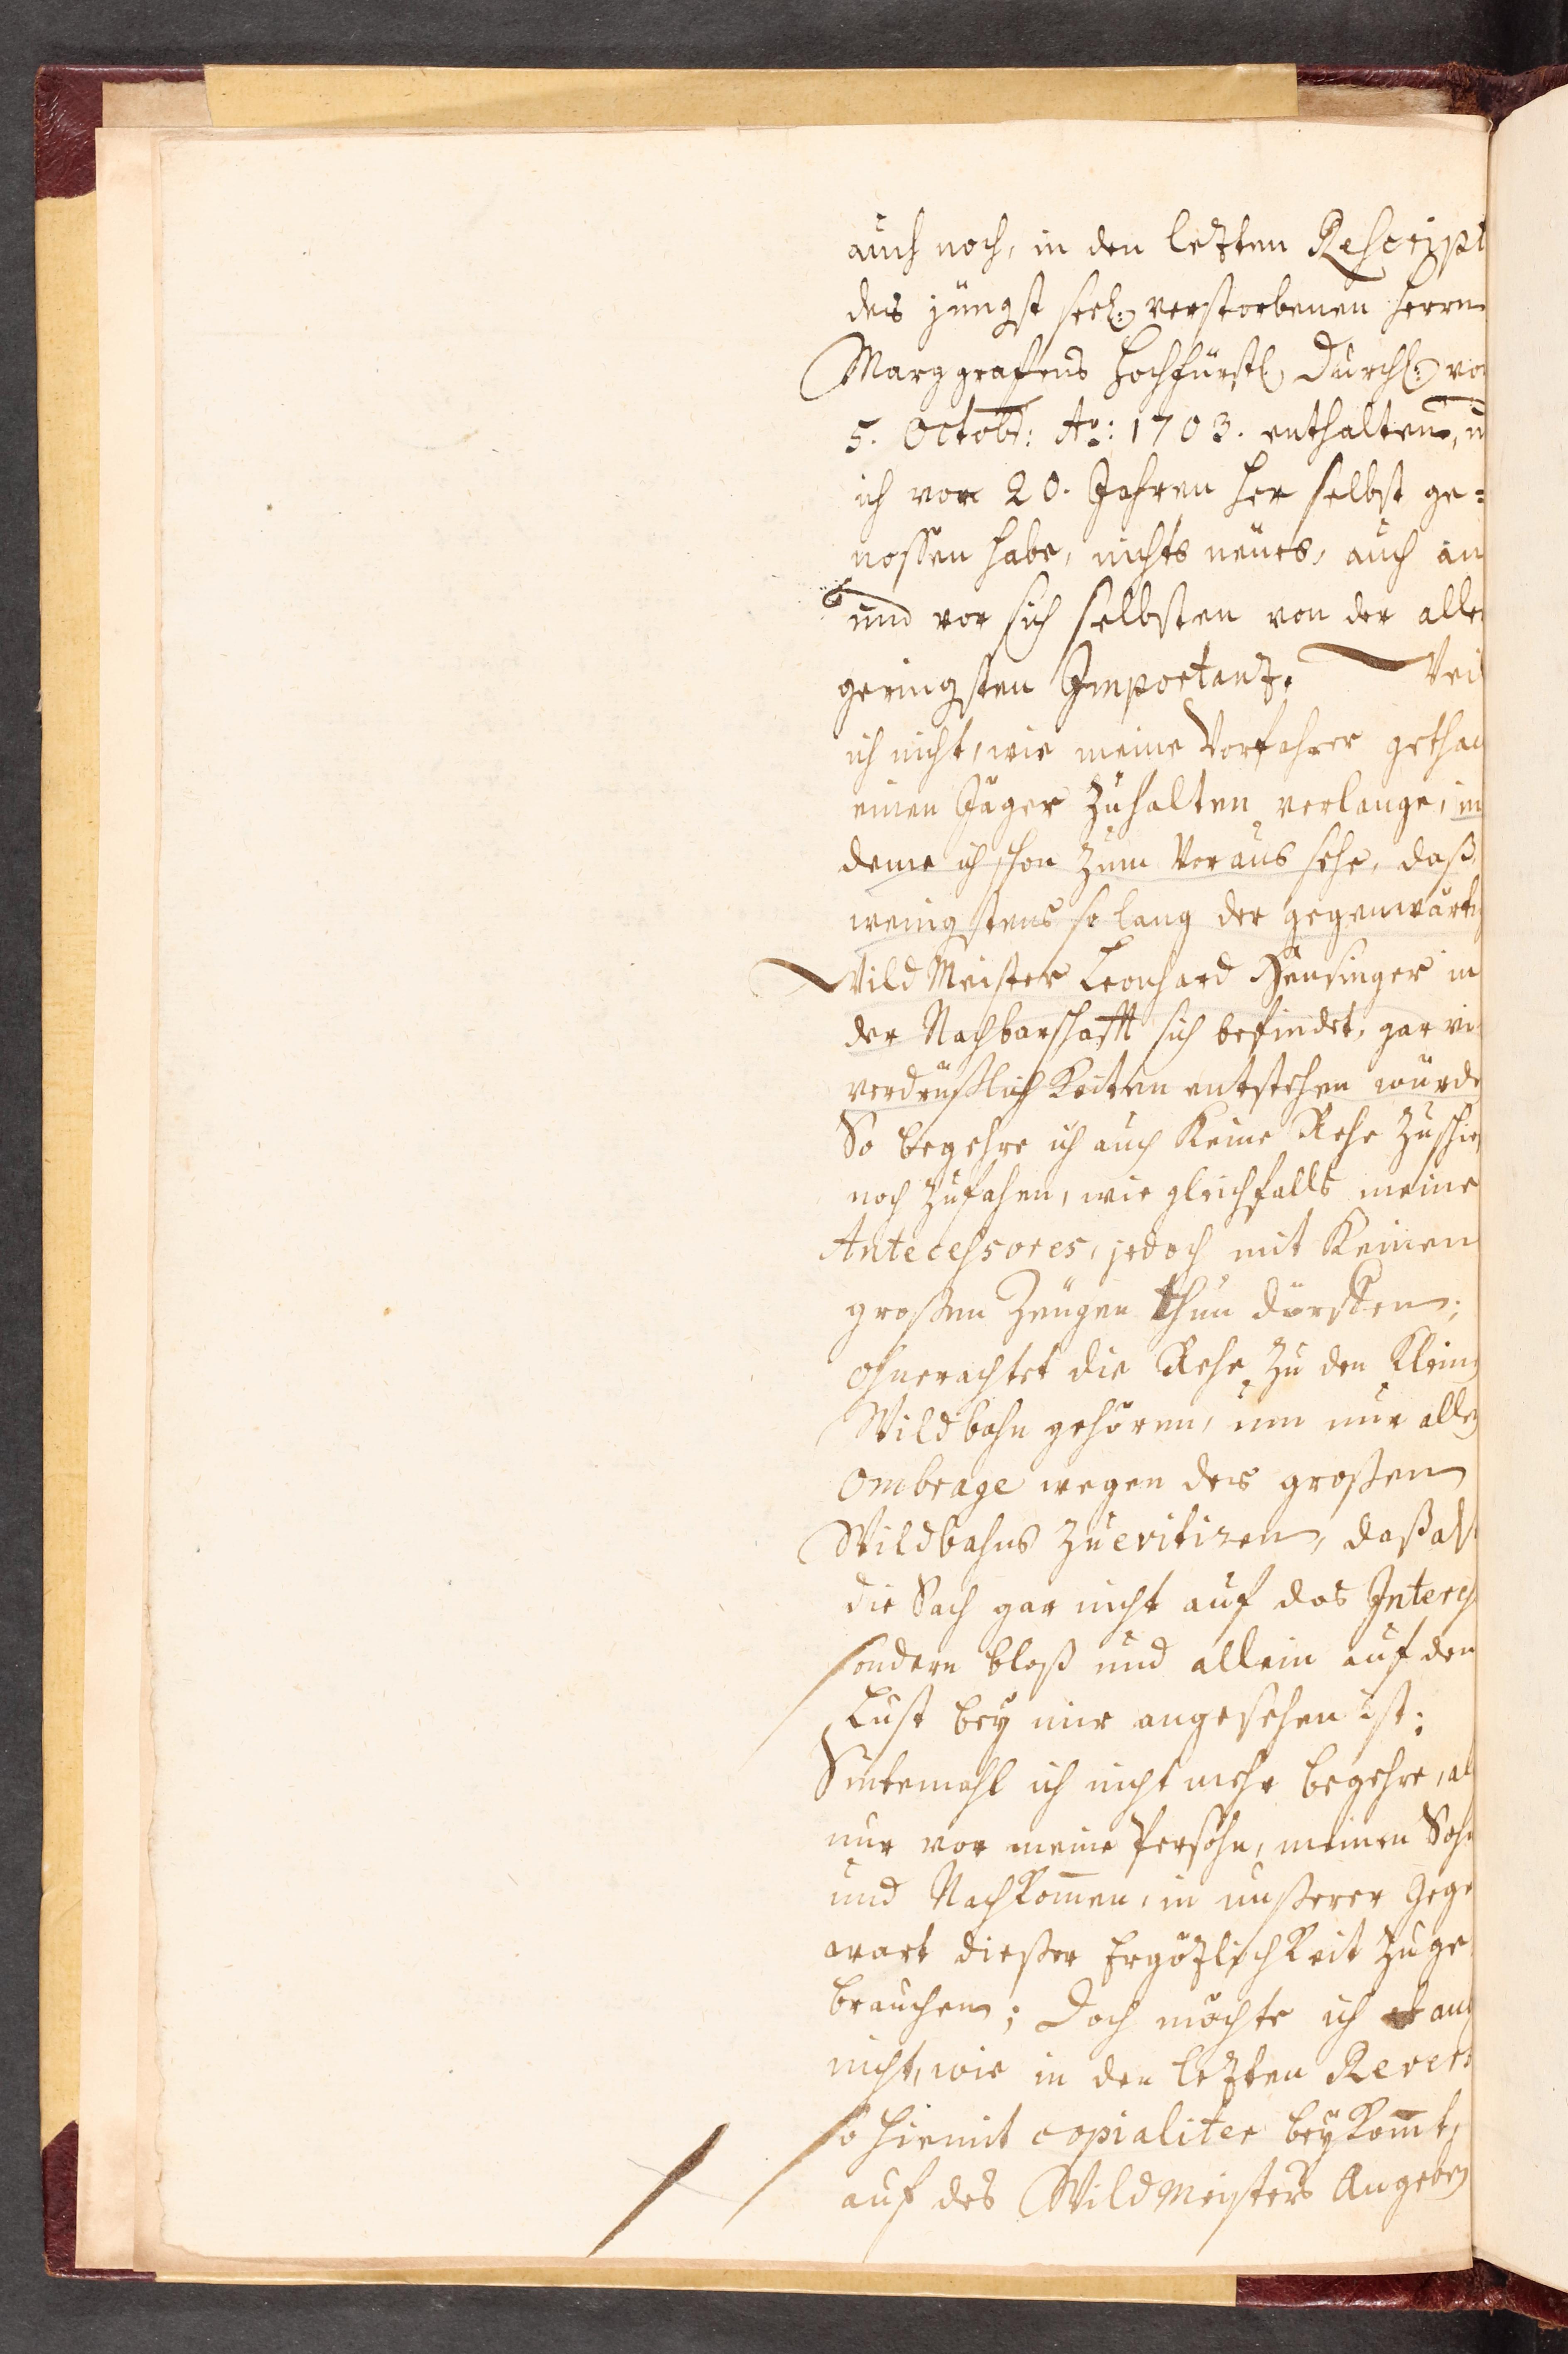 auch noch, in den lezten Rescript
des jüngst seel: verstorbenen Herrn
Marggrafens Hochfürstl. Durchl: vo
5. Octobr: Ao: 1703. enthalten, u
ich vor 20. Jahren her selbst ge=
nossen habe, nichts neües, auch an
und vor sich selbsten von der aller
geringsten Importanz. Weil
ich nicht, wie meine Vorfahrer gethan
einen Jäger zuhalten verlange, in
deme ich schon zum Voraus sehe, daß
wenigstens so lang der gegenwärtig
WildMeister Leonhard Hensinger in
der Nachbarschafft sich befindet, gar vi
verdrüßlichkeiten entstehen würde
So begehre ich auch keine Rehe zuschie
noch zufahen, wie gleichfalls meine
Antecessores, jedoch mit keinen
großen Zeügen thun dürffen;
ohnerachtet die Rehe zu den kleinen
Wildbahn gehören, um nur allen
Ombrage wegen des großen
Wildbahns zu evitiren, daß als
die Sach gar nicht auf das Interess
sondern bloß und allein auf den
Lust bey mir angesehen ist;
Sintemahl ich nicht mehr begehre, al
nur vor meine Persohn, meinen Sohn
und Nachkommen, in unßerer Gege
wart dießer Ergözlichkeit zu ge
brauchen; Doch möchte ich auch
nicht, wie in den lezten Revers
so hiemit copialiter beykommt,
auf des WildMeisters Angeben